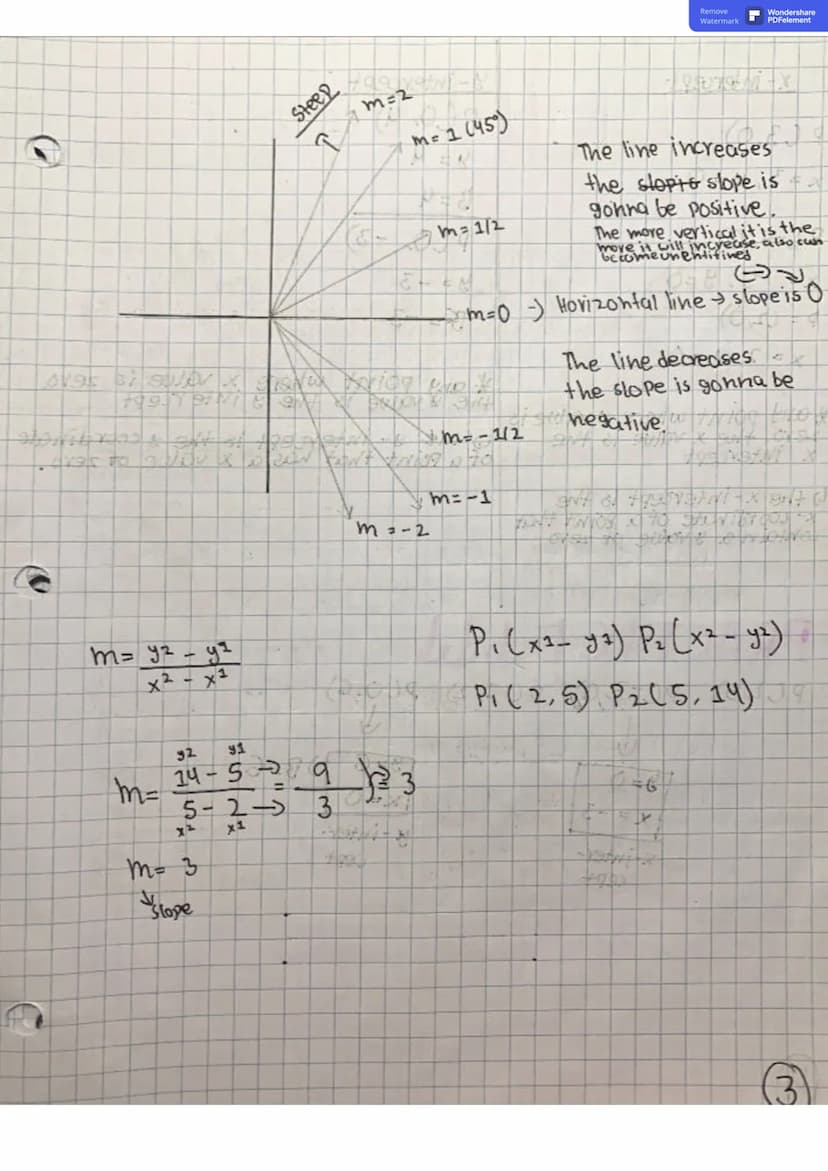 Remove
Watermark
Wondershare
PDFelement
steep
m=2
m= 1 (45°)
m= 1/2
m=0 → Horizontal line → slope is 0
m= -1/2
m= -1
m = -2
The line increases
the slopis slope is
gonna be positive.
The more vertical it is the
more it will increase, also can
become
The line decreases
the slope is gonna be
negative.
m= y2 - y1
x2 - x1
P1 (x1 - y1) P2 (x2 - y2)
P1 (2,5) P2 (5, 14)
y2 y1
m= 14 - 5 → = 9 } = 3
5 - 2 → 3
x2 x1
m= 3
↓ slope
3